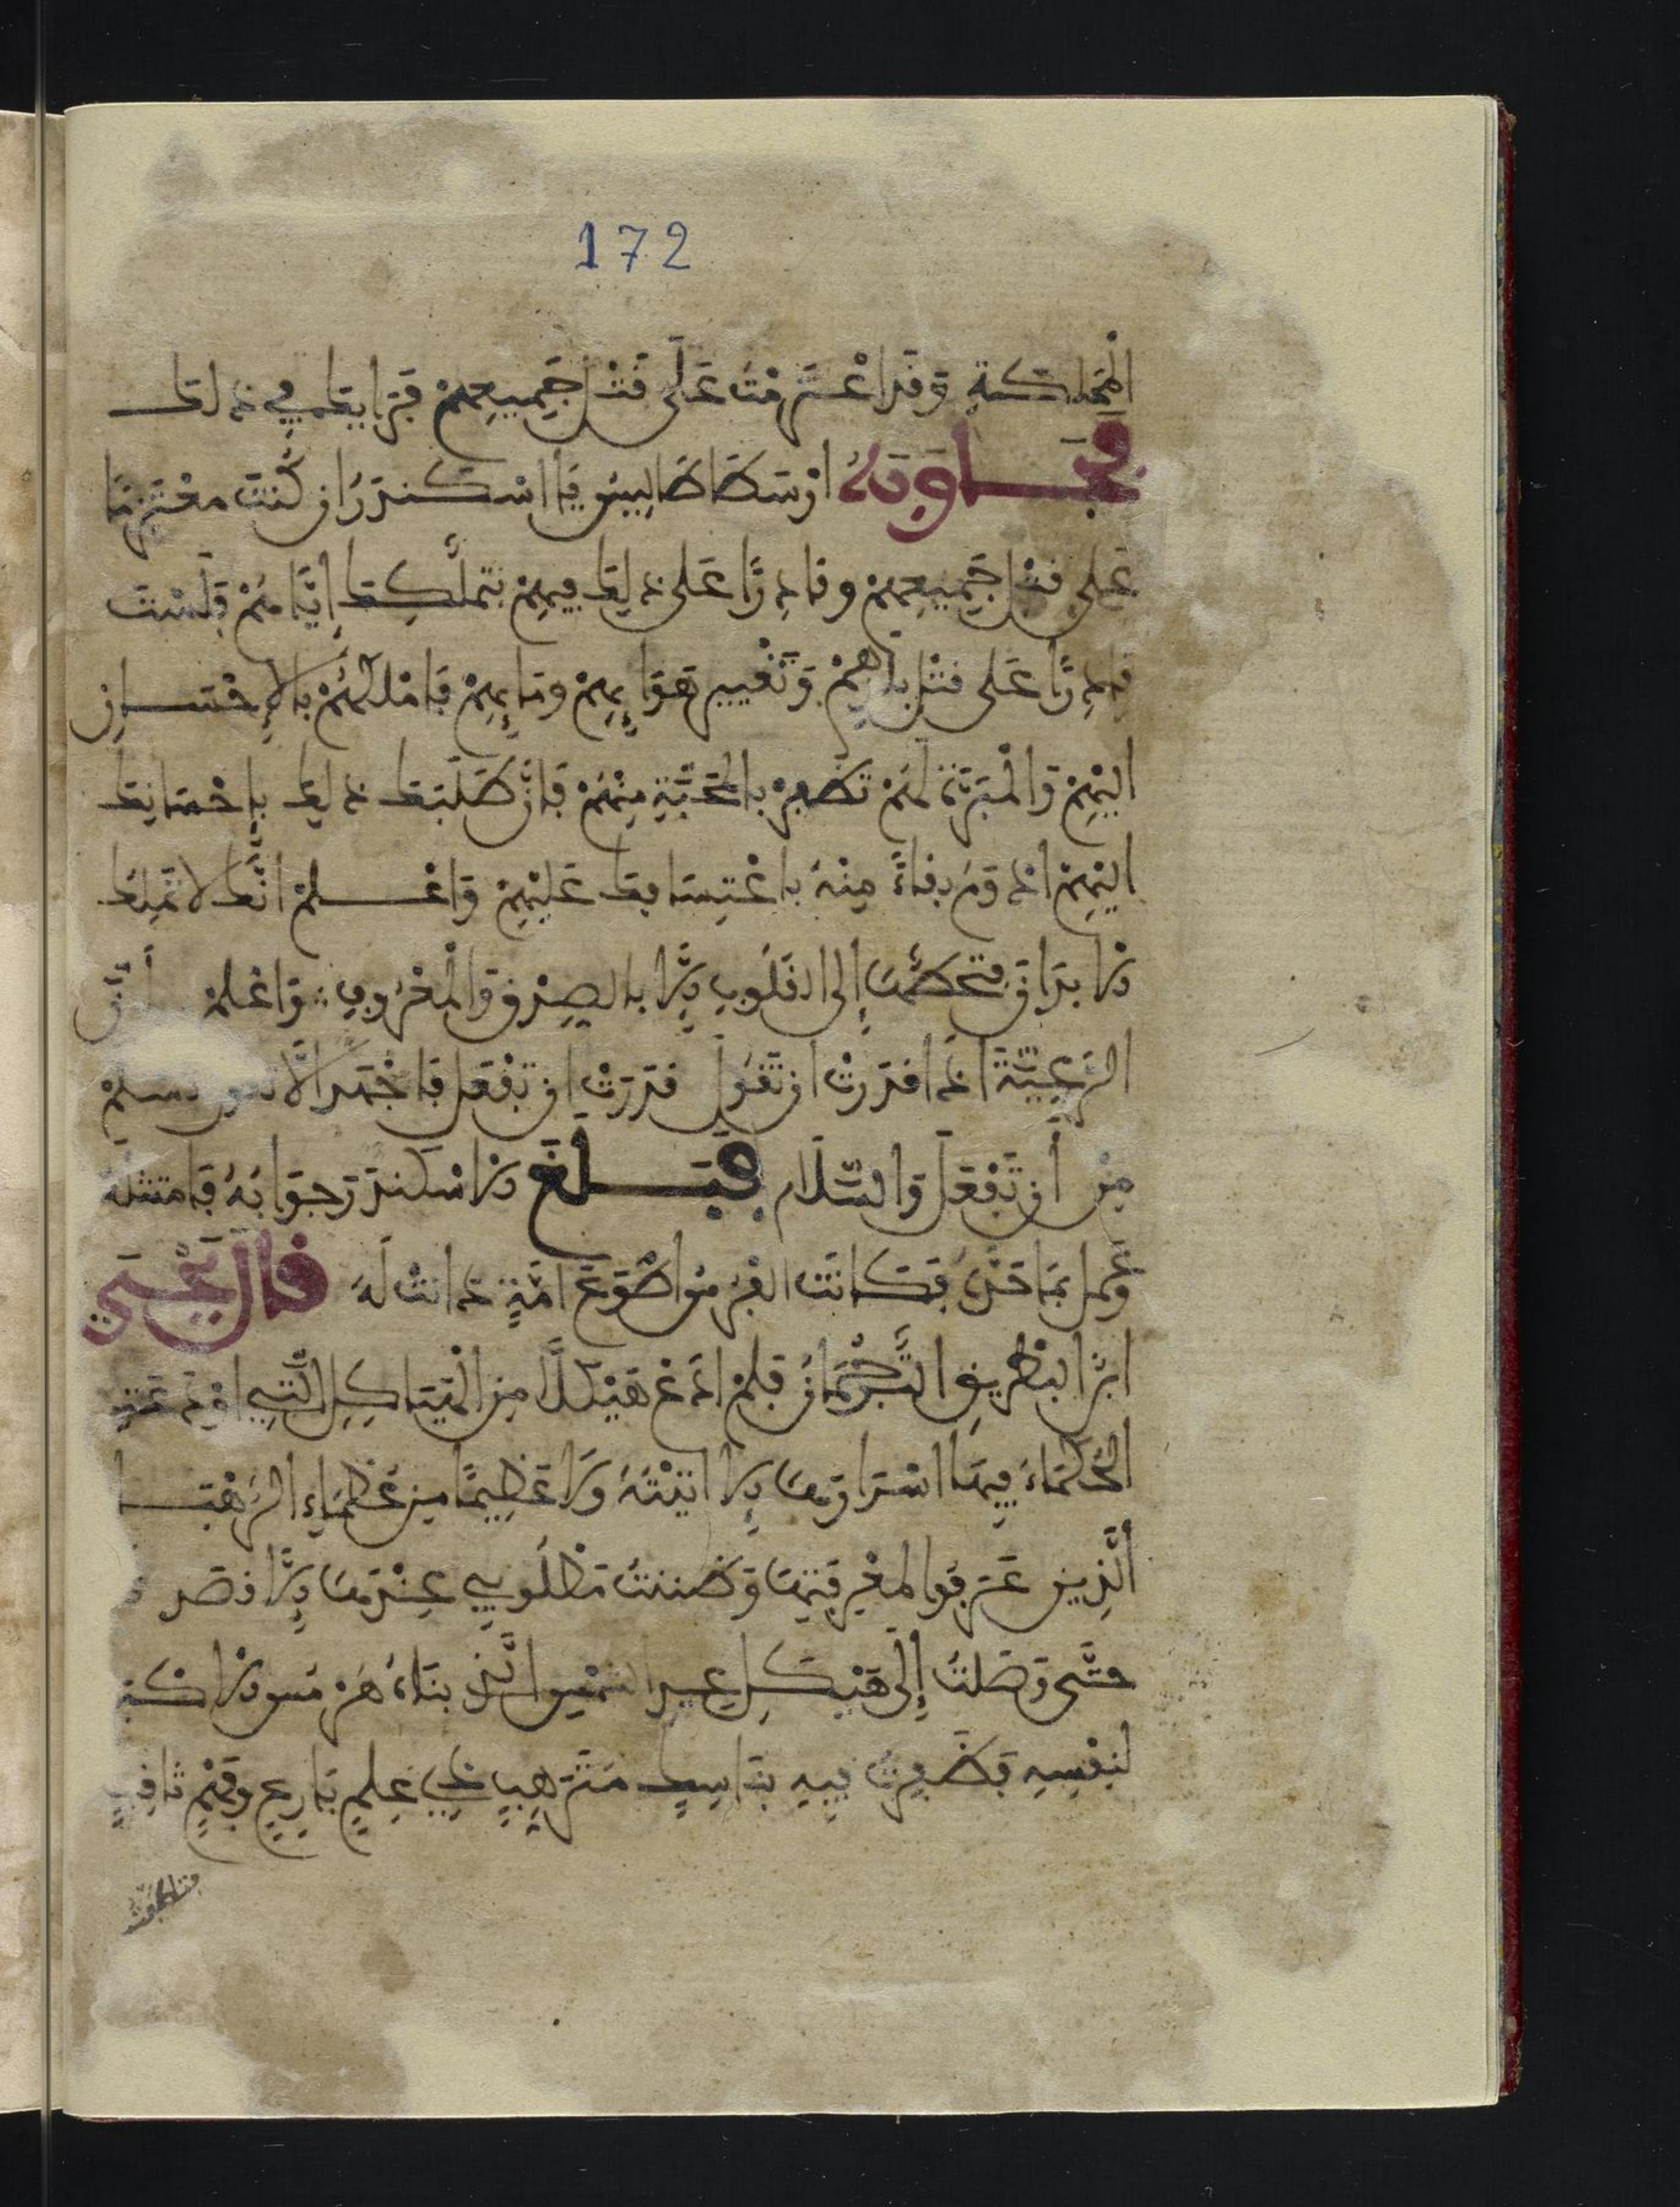 172
المملكة وقد اعتزمت على قتل جميعهم فما رأيك في ذلك
فجاوبه ارسطاطاليس يا اسكندر ان كنت معتزما
على قتل جميعهم وقادرا على ذلك فيهم بتملكك إياهم فلست
قادرا على قتل بلدهم وتغيير هوائهم ومائهم فاملكهم بالإحسان
اليهم والمبرة لهم تظفر بالمحبة منهم فإن طلبك ذلك بإحسانك
اليهم ادوم بقاء منه باعتسافك عليهم واعلم انك لا تملك
الابدان فتخطها إلى القلوب إلا بالصدق والمعروف واعلم أن
الرعية اذا قدرت ان تقول قدرت ان تفعل فاجهد الا تقول تسلم
من أن تفعل والسلام فبلغ الاسكندر جوابه فامتثله
وعمل بما حد فكانت الفرس اطوع امة دانت له قال يحيى
ابن البطريق الترجمان فلم ادع هيكلا من الهياكل التي اودعت
الحكماء فيها اسرارها إلا اتيته ولا عظيما من عظماء الرهبا
الذين عرفوا لمعرفتها وظننت مطلوبي عندها إلا قصد
حتى وصلت إلى هيكل عبد الشمس الذي بناه هرمس الاكبر
لنفسه فظفرت فيه بناسك مترهب ذي علم بارع وفهم ثاقب